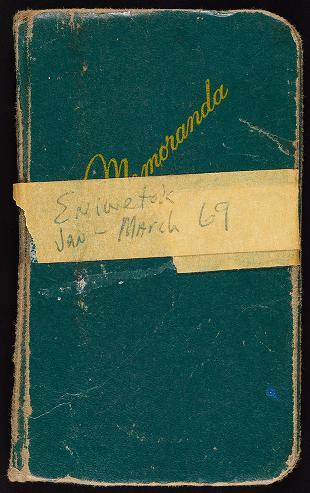 Memoranda
Eniwetok
Jan - March 69